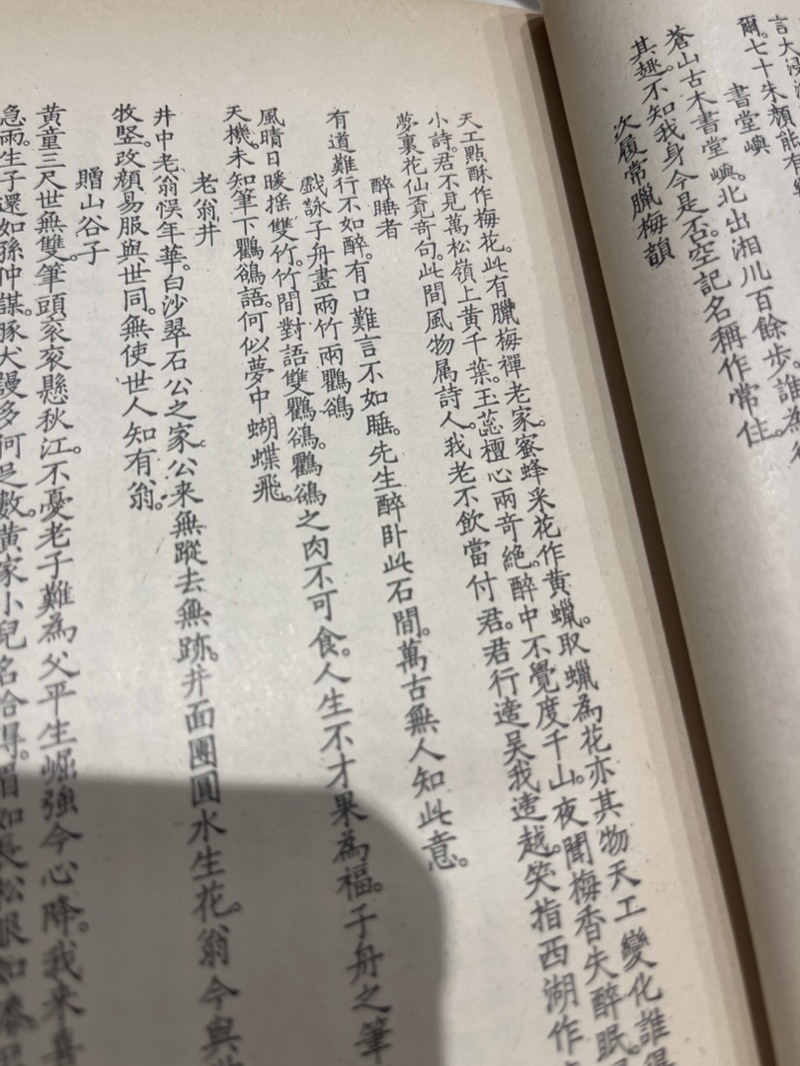 言大浸
爾。七十朱顏能有
書堂嶼
蒼山古木書堂嶼。北出湘川百餘步。誰為
其趣。不知我身今是否。空記名稱作常住。
次履常臘梅韻
天工點酥作梅花。此有臘梅禪老家。蜜蜂采花作黃蠟。取蠟為花亦其物。天工變化誰得
小詩。君不見萬松嶺上黃千葉。玉蕊檀心兩奇絕。醉中不覺度千山。夜聞梅香失醉眠。
夢裏花仙覓奇句。此間風物屬詩人。我老不飲當付君。君行適吳我適越。笑指西湖作
醉睡者
有道難行不如醉。有口難言不如睡。先生醉卧此石間。萬古無人知此意。
戲詠子舟畫兩竹兩鸜鵒
風晴日暖搖雙竹。竹間對語雙鸜鵒。鸜鵒之肉不可食。人生不才果為福。子舟之筆
天機。未知筆下鸜鵒語。何似夢中蝴蝶飛。
老翁井
井中老翁悮年華。白沙翠石公之家。公来無蹤去無跡。井面團圓水生花。翁今與
牧竪。改顏易服與世同。無使世人知有翁。
贈山谷子
黃童三尺世無雙。筆頭衮衮懸秋江。不憂老子難為父。平生崛強今心降。我来喜
急雨。生子還如孫仲謀。豚犬謾多何足數。黃家小兒名拾得。眉如長松眼如漆。